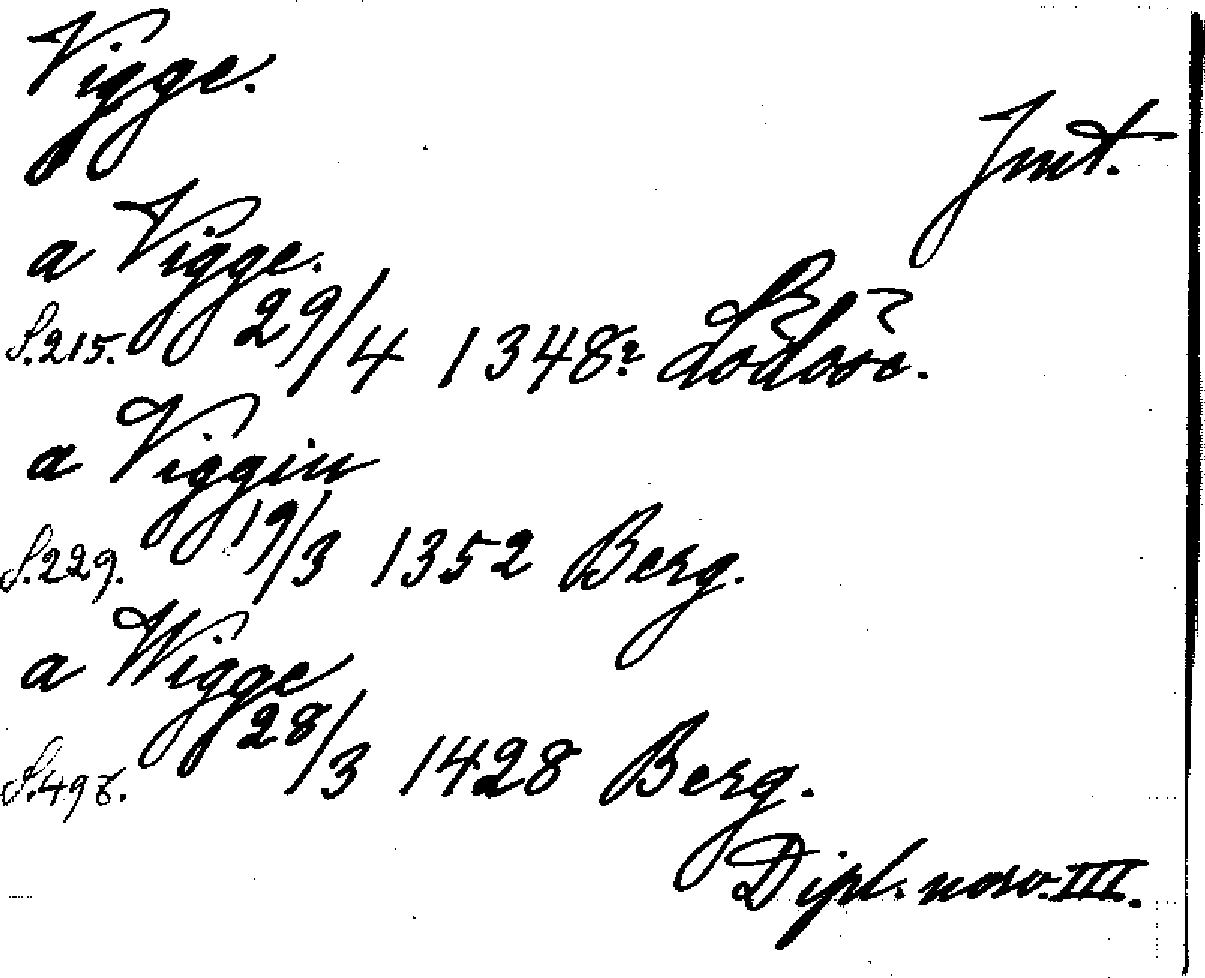 Vigge.
Jmt.
a Vigge.
S. 215. 29/4 1348?
a Viggin
S. 229. 19/3 1352 Berg.
a Wigge
S. 498. 28/3 1428 Berg.
Dipl. norv. III.